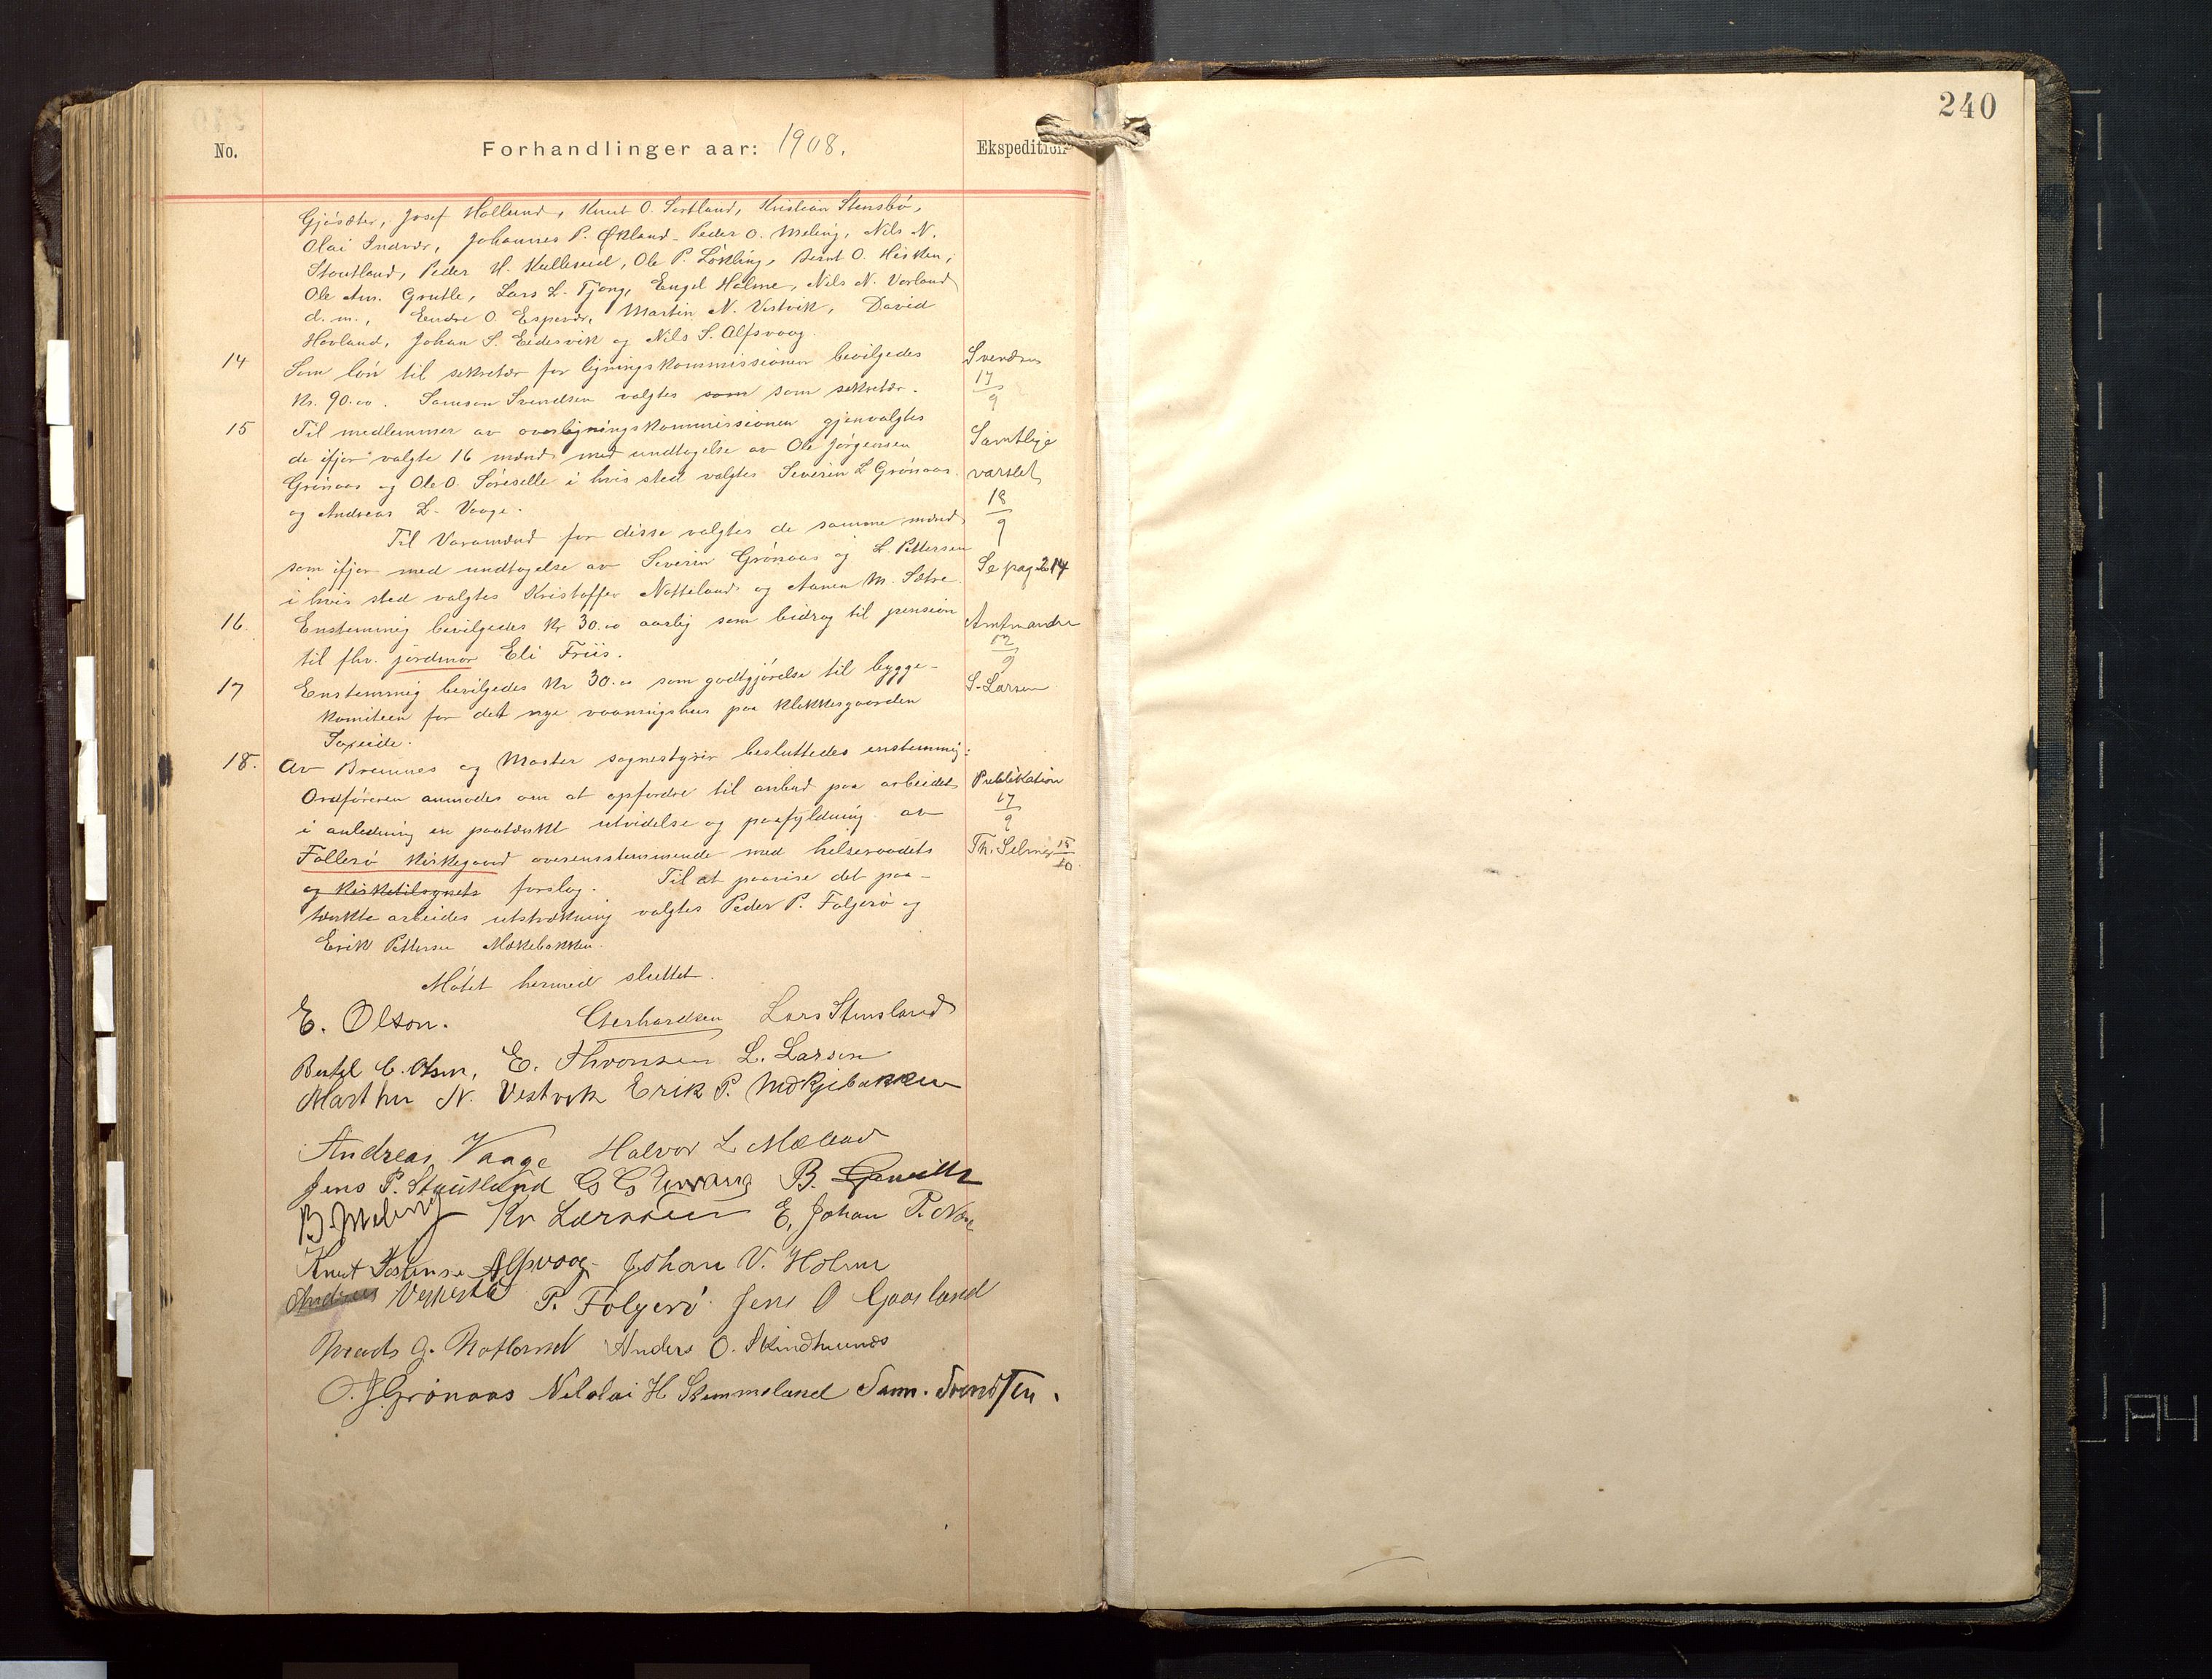 240
No.
Forhandlinger aar: 1908.
Ekspedition
Gjösæter, Josef Hollund, Knut O. Sortland, Kristian Stensbö,
Olai Indvær, Johannes P. Økland, Peder O. Meling, Nils N.
Stoutland, Peder H. Kulleseid, Ole P. Lökling, Bernt O. Hisken,
Ole Am. Grutle, Lars L. Tjong, Engel Holme, Nils N. Vorland
d. m., Endre O. Espevær, Martin N. Vestvik, David
Hovland, Johan S. Eidesvik og Nils S. Alfsvaag.
14 Som lön til sekretær for ligningskommissionen bevilgedes
Kr. 90.00. Samson Svendsen valgtes som som sekretær.
Svendsen
17/9
15 Til medlemmer av overligningskommissionen gjenvalgtes
de ifjor valgte 16 mænd med undtagelse av Ole Jörgensen
Grönaas og Ole O. Söreselle i hvis sted valgtes Severin L Grönaas
og Andreas L. Vaage.
Samtlige
varslet
18/9
Til Varamænd for disse valgtes de samme mænd
som ifjor med undtagelse av Severin Grönaas og L. Pettersen
i hvis sted valgtes Kristoffer Notteland og Aanen M. Sætre.
Se pag. 214
16. Enstemmig bevilgedes Kr 30.00 aarlig som bidrag til pension
til fhv. jordmor Eli Friis.
Amtmanden
12/9
17 Enstemmig bevilgedes Kr 30.00 som godtgjörelse til bygge-
komiteen for det nye vaaningshus paa klokkergaarden
Søreide.
S. Larsen
18. Av Bremnes og Moster sognestyrer besluttedes enstemmig:
Ordföreren anmodes om at opfordre til anbud paa arbeidet
i anledning en paatænkt utvidelse og paafyldning av
Follerö Kirkegaard overensstemmende med helseraadets
og kirketilsynets forslag. Til at paavise det paa-
tænkte arbeides utstrækning valgtes Peder P. Folgerö og
Erik Pettersen Mækebakken.
Publikation
17/9
Th. Selmer 15/10.
Mötet hermed sluttet.
E. Olson. Gerhardsen Lars Stensland
Bertel C. Olsen, E. Thronsen L. Larsen
Marthin N. Vestvik Erik P. Mökjebakken
Andreas Vaage Halvor L Mæland
Jens P. Stautland G G B.
B. Meling Kr Larssen E. Johan P. Næs
Knut Alfsvaag. Johan V. Holm
Andreas P. Folgerö Jens O Gaasland
G. Notland Anders O. Skimdhunds
O. J. Grönaas Nikolai H Stemmeland Sam. Svendsen.